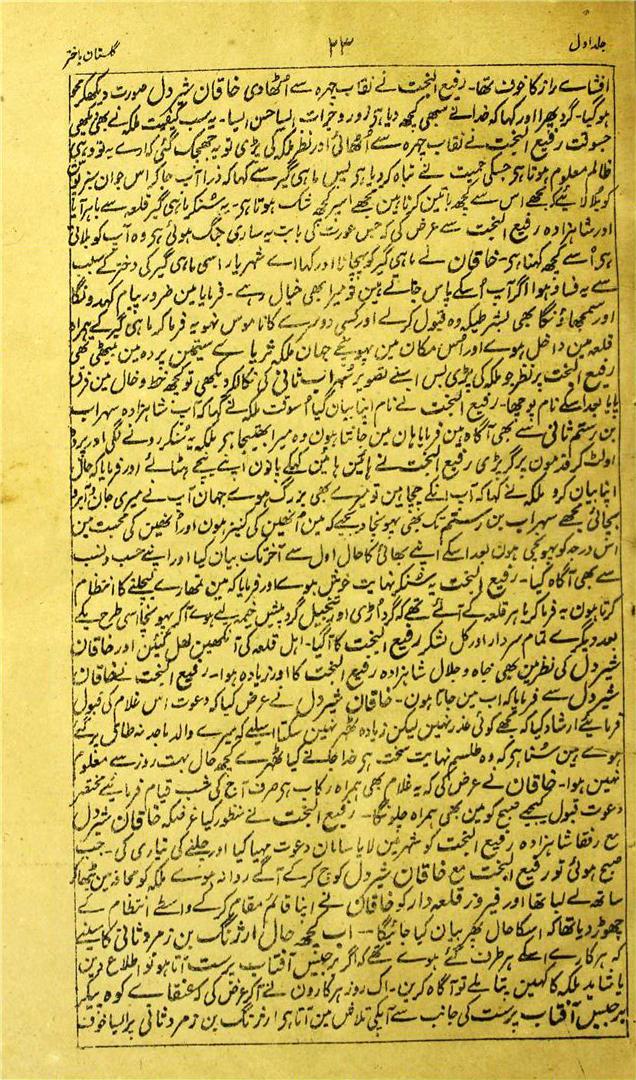 جلد اول ۲۳ گلستان باختر
افشاے راز کا خوف تھا۔ رفیع البخت نے نقاب چہرہ سے اُٹھا دی خاقان شیر دل صورت دیکھکر محو
ہو گیا۔ گرد پھرا اور کہا کہ خدا نے سبھی کچھ دیا ہے زور و جرات ایسا حسن ایسا۔ یہ سب کیفیت ملکہ نے بھی دیکھی
جسوقت رفیع البخت نے نقاب چہرہ سے اُٹھائی اور نظر ملکہ کی پڑی تو یہ جھجک گئی کہ ارے یہ تو وہی
ظالم معلوم ہوتا ہے جسکی محبت نے تباہ کر دیا ہے پس ماہی گیر سے کہا کہ ذرا آپ جا کر اس جوان سبز پوش
کو بلا لائیے کہ مجھے اس سے کچھ باتیں کرنا ہیں مجھے اسپر کچھ شک ہوتا ہے۔ یہ سُنکر ماہی گیر قلعہ سے باہر آیا
اور شاہزادہ رفیع البخت سے عرض کی کہ جس عورت کی بابت یہ ساری جنگ ہوئی ہے وہ آپ کو بلاتی
ہے اُسے کچھ کہنا ہے۔ خاقان نے ماہی گیر کو پہچانا اور کہا اے شہریار اسی ماہی گیر کی دختر کے سبب
سے یہ فساد ہوا اگر آپ اُسکے پاس جاتے ہیں تو میرا بھی خیال رہے۔ فرمایا مین ضرور پیام کہدونگا
اور سمجھاؤنگا بھی بشرطیکہ وہ قبول کرلے اور کسی دوسرے کا ناموس نہو یہ فرما کہ ماہی گیر کے ہمراہ
قلعہ مین داخل ہوے اور اُس مکان مین پہونچے جہان ملکہ ثریا سیمتن پردہ مین بیٹھی تھی
رفیع البخت پر نظر جو ملکہ کی پڑی بس اسنے تصویر سُہراب ثانی کی نکالکر دیکھی تو کچھ خط و خال مین فرق
پایا بعد اسکے نام پوچھا۔ رفیع البخت نے نام اپنا بیان کیا اُسوقت ملکہ نے کہا کہ آپ شاہزادہ سہراب
بن رستم ثانی سے بھی آگاہ ہین فرمایا ہان مین جانتا ہون وہ میرا بھتیجا ہے ملکہ یہ سُنکر رونے لگی اور پردہ
اولٹ کر قدمون پر گر پڑی رفیع البخت نے ہائین ہائین کہکے پانون اپنے پیچھے ہٹائے اور فرمایا کہ حال
اپنا بیان کرو ملکہ نے کہا کہ آپ اُنکے چچا ہین تو میرے بھی بزرگ ہوے جہان آپ نے میری جان و آبرو
بچائی مجھے سہراب بن رستم تک بھی پہونچا دیجیے کہ مین اُنھین کی کنیز ہون اور اُنھین کی محبت مین
اس درجہ کو پہونچی ہون بعد اسکے اپنے بھائی کا حال اول سے آخر تک بیان کیا اور اپنے حسب و نسب
سے بھی آگاہ کیا۔ رفیع البخت یہ سُنکر نہایت خوش ہوے اور فرمایا کہ مین تمھارے لیجانے کا انتظام
کرتا ہون یہ فرما کر باہر قلعہ کے آئے تھے کہ گرد اُڑی اور سنجیل گرد پیش خیمہ لیے ہوے آ کر پہونچا اسی طرح یکے
بعد دیگرے تمام سردار اور کل لشکر رفیع البخت کا آ گیا۔ اہل قلعہ کی آنکھین کھل گئین اور خاقان
شیر دل کی نظر مین بھی جاہ و جلال شاہزادہ رفیع البخت کا اور زیادہ ہوا۔ رفیع البخت نے خاقان
شیر دل سے فرمایا کہ اب مین جاتا ہون۔ خاقان شیر دل نے عرض کیا کہ دعوت اس غلام کی قبول
فرمائیے ارشاد کیا کہ مجھے کوئی عذر نہین لیکن زیادہ ٹھہر نہین سکتا اسلیے کہ میرے والد ماجد نہ طاق پر گئے
ہوے ہین سُنا ہے کہ وہ طلسم نہایت سخت ہے خدا جانے کیا ٹھہرے کچھ حال بہت روز سے معلوم
نہین ہوا۔ خاقان نے عرض کی کہ یہ غلام بھی ہمراہ رکاب ہے صرف آج کی شب قیام فرمائیے مختصر
دعوت قبول کیجیے صبح کو مین بھی ہمراہ چلونگا۔ رفیع البخت نے منظور کیا غرضکہ خاقان شیر دل
مع رفقا شاہزادہ رفیع البخت کو شہر مین لایا سامان دعوت مہیا کیا اور چلنے کی تیاری کی۔ جب
صبح ہوئی تو رفیع البخت مع خاقان شیر دل کوچ کر کے آگے روانہ ہوے ملکہ کو محافہ مین بٹھا کر
ساتھ لے لیا تھا اور فیروز قلعہ دار کو خاقان نے اپنا قائم مقام کر کے واسطے انتظام کے
چھوڑ دیا تھا کہ اسکا حال پھر بیان کیا جائیگا۔ اب کچھ حال ارژنگ بن زمرد ثانی کا سنیے
کہ ہرکارے اسکے ہر طرف گئے ہوے تھے کہ اگر برجیس آفتاب پرست آتا ہو تو اطلاع کرین
یا شاید ملکہ کا کہین پتا ملے تو آگاہ کرین۔ اک روز ہرکارون نے آ کر عرض کی کہ عنقاے کوہ پیکر
برجیس آفتاب پرست کی جانب سے آپکی تلاش مین آتا ہے ارژنگ بن زمرد ثانی پر ایسا خوف